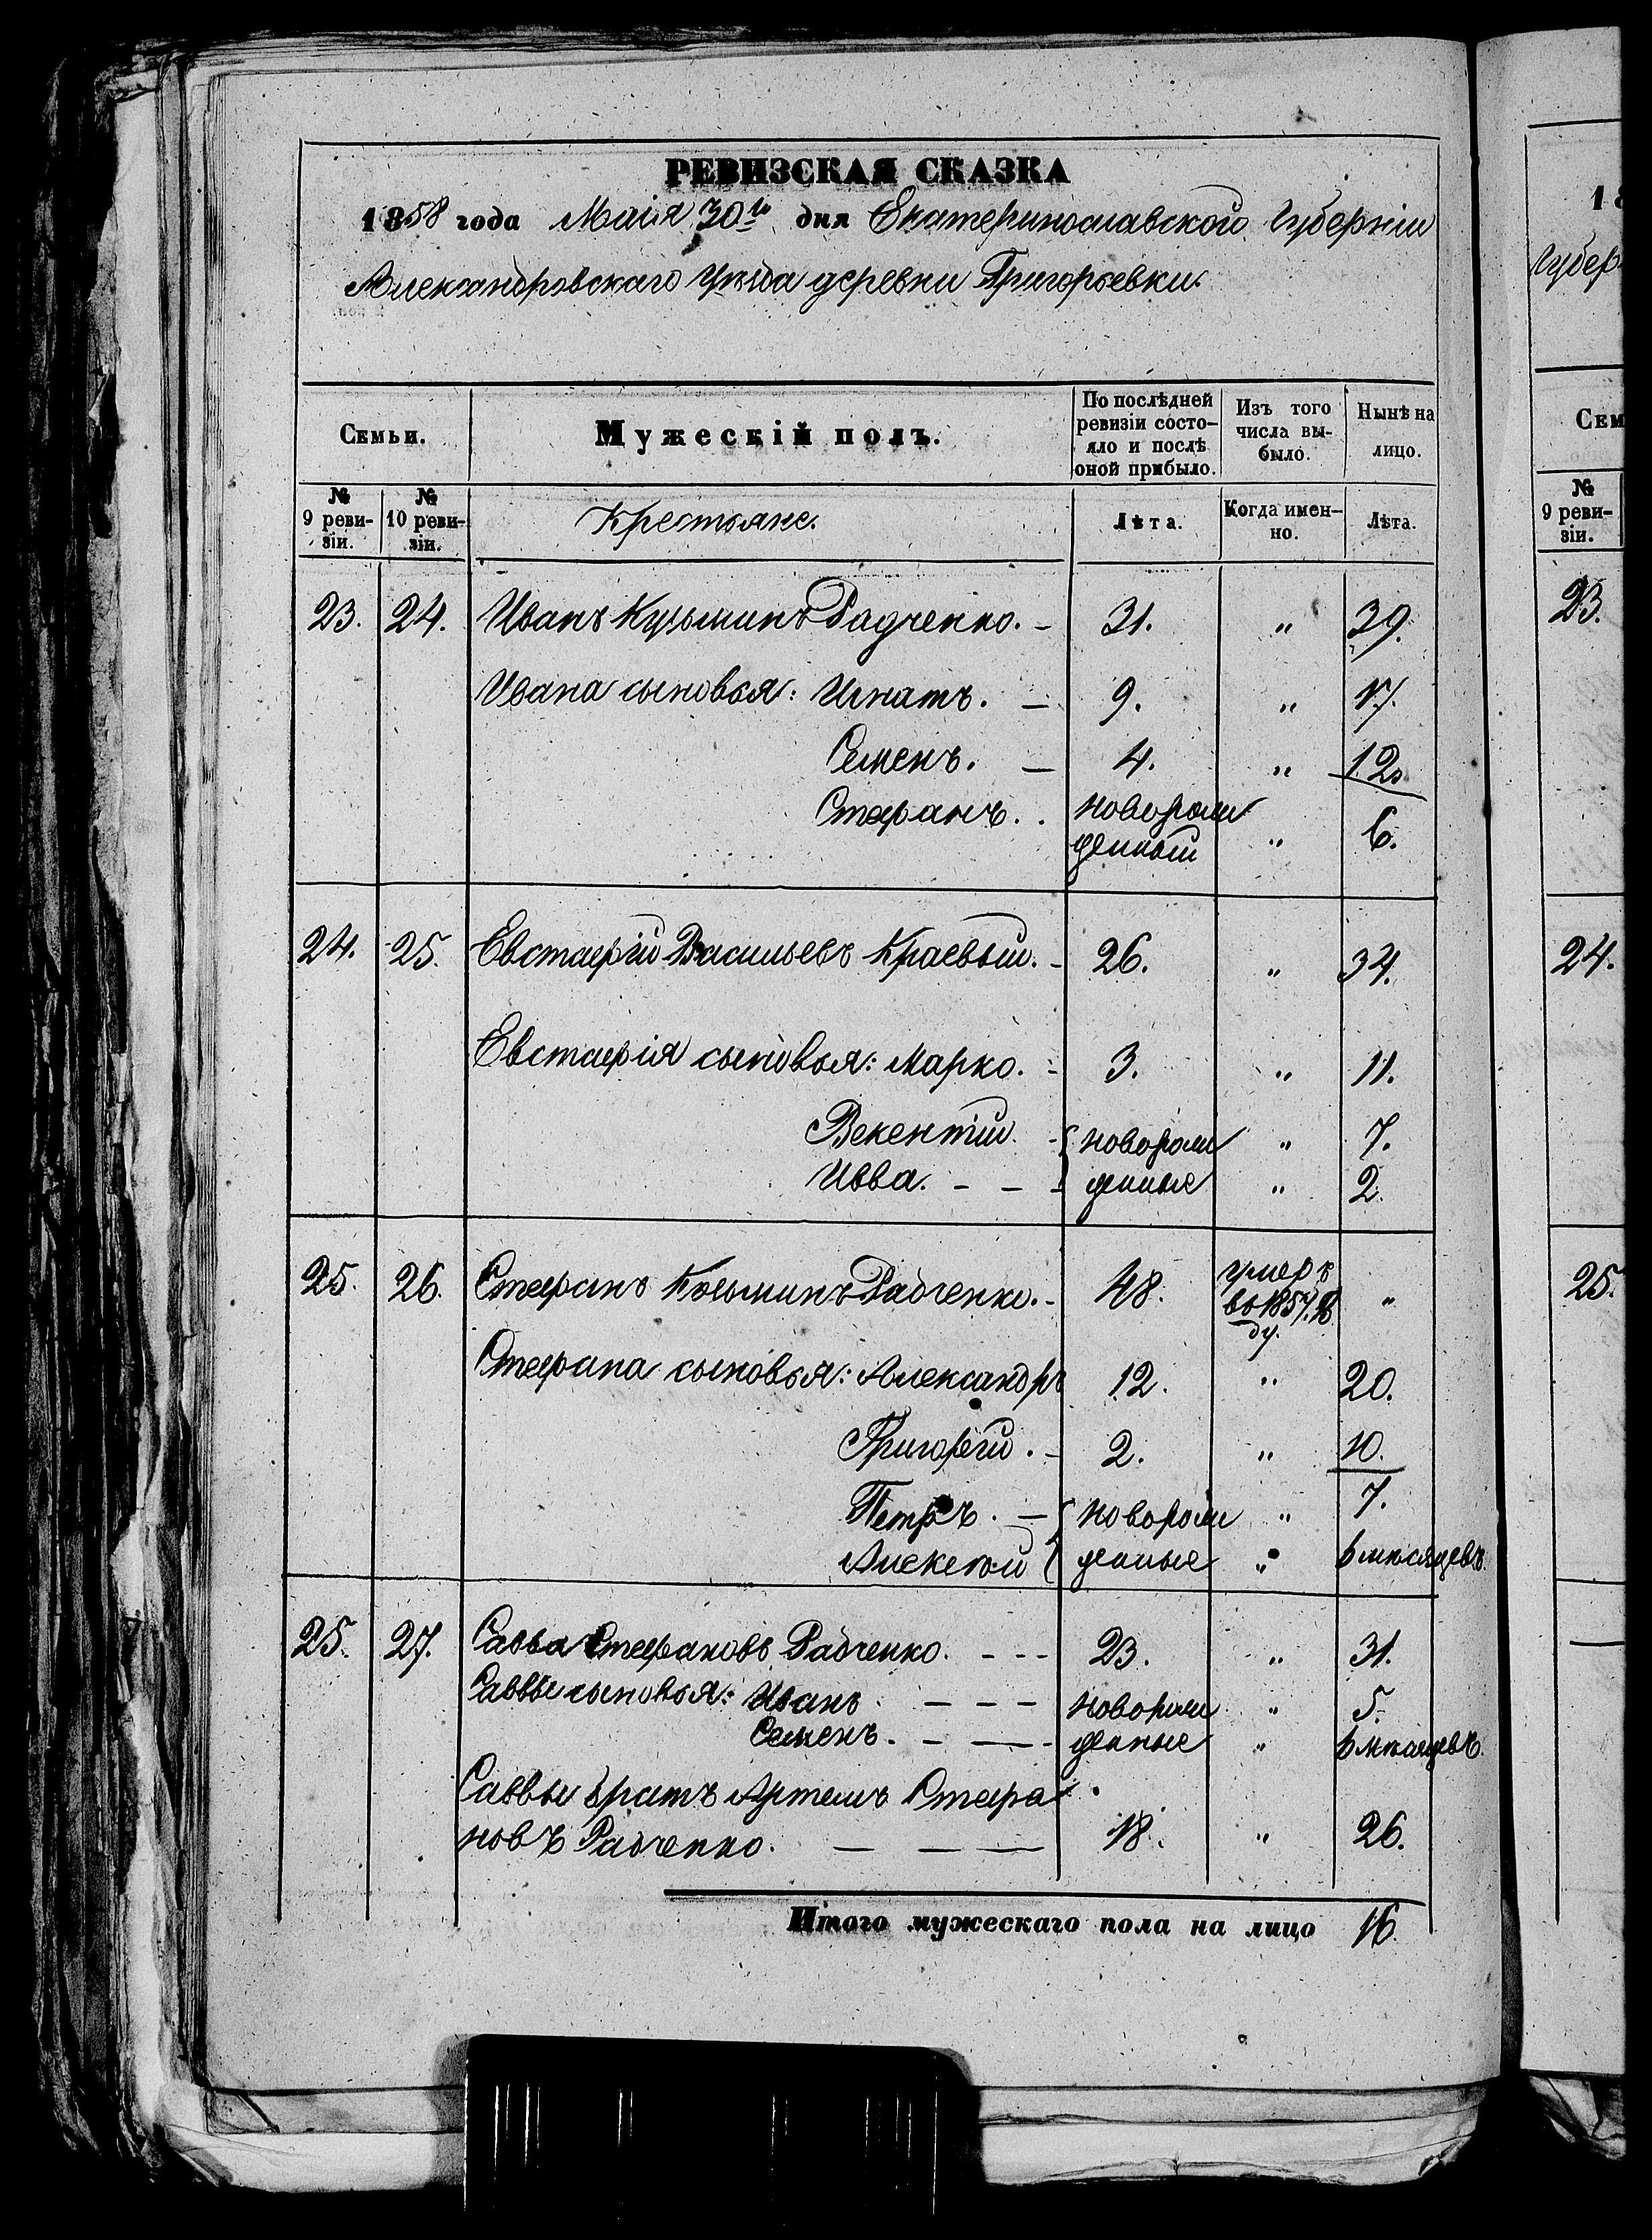 РЕВИЗСКАЯ СКАЗКА
1858 года Маія 30го дня Екатеринославской Губерніи
Александровскаго Уѣзда деревни Григорьевки.
Семьи.
Мужескій полъ.
По послѣдней ревизіи состо-
яло и послѣ
оной прибыло.
Изъ того
числа вы-
было.
Нынѣ на
лицо.
№
9 реви-
зіи.
№
10 реви-
зіи.
Крестьяне.
Лѣта.
Когда имен-
но.
Лѣта.
23. 24. Иванъ Кузьминъ Радченко. - 31. " 39.
Ивана сыновья: Игнатъ. — 9. " 17.
Семенъ. — 4. " 12.
Стефанъ. . новорож
денный " 6.
24. 25. Евстафій Васильевъ Краевый. - 26. " 34.
Евстафія сыновья: Марко. - 3. " 11.
Векентій. - новорож " 7.
Ивва. - - - денные " 2.
25. 26. Стефанъ Козьминъ Радченко. - 48. умеръ
во 1857. го
ду. "
Стефана сыновья: Александръ 12. " 20.
Григорій. - 2. " 10.
Петръ. — новорож " 7.
Алексѣй денные " 6 мѣсяцевъ.
25. 27. Савва Стефановъ Радченко. - - - 23. " 31.
Саввы сыновья: Иванъ — — — новорож " 5.
Семенъ. - — - денные " 6 мѣсяцевъ.
Саввы братъ Артемъ Стефа
новъ Радченко. — — — 18. " 26.
Итого мужескаго пола на лицо 16.
18
Губер
Сем
№
9 реви-
зіи.
23.
24.
25.